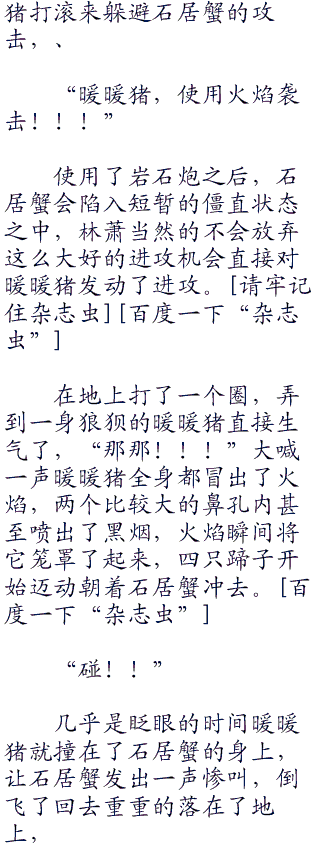 猪打滚来躲避石居蟹的攻
击，、
“暖暖猪，使用火焰袭
击！！！”
使用了岩石炮之后，石
居蟹会陷入短暂的僵直状态
之中，林萧当然的不会放弃
这么大好的进攻机会直接对
暖暖猪发动了进攻。[请牢记
住杂志虫][百度一下“杂志
虫”]
在地上打了一个圈，弄
到一身狼狈的暖暖猪直接生
气了，“那那！！！”大喊
一声暖暖猪全身都冒出了火
焰，两个比较大的鼻孔内甚
至喷出了黑烟，火焰瞬间将
它笼罩了起来，四只蹄子开
始迈动朝着石居蟹冲去。[百
度一下“杂志虫”]
“碰！！”
几乎是眨眼的时间暖暖
猪就撞在了石居蟹的身上，
让石居蟹发出一声惨叫，倒
飞了回去重重的落在了地
上，